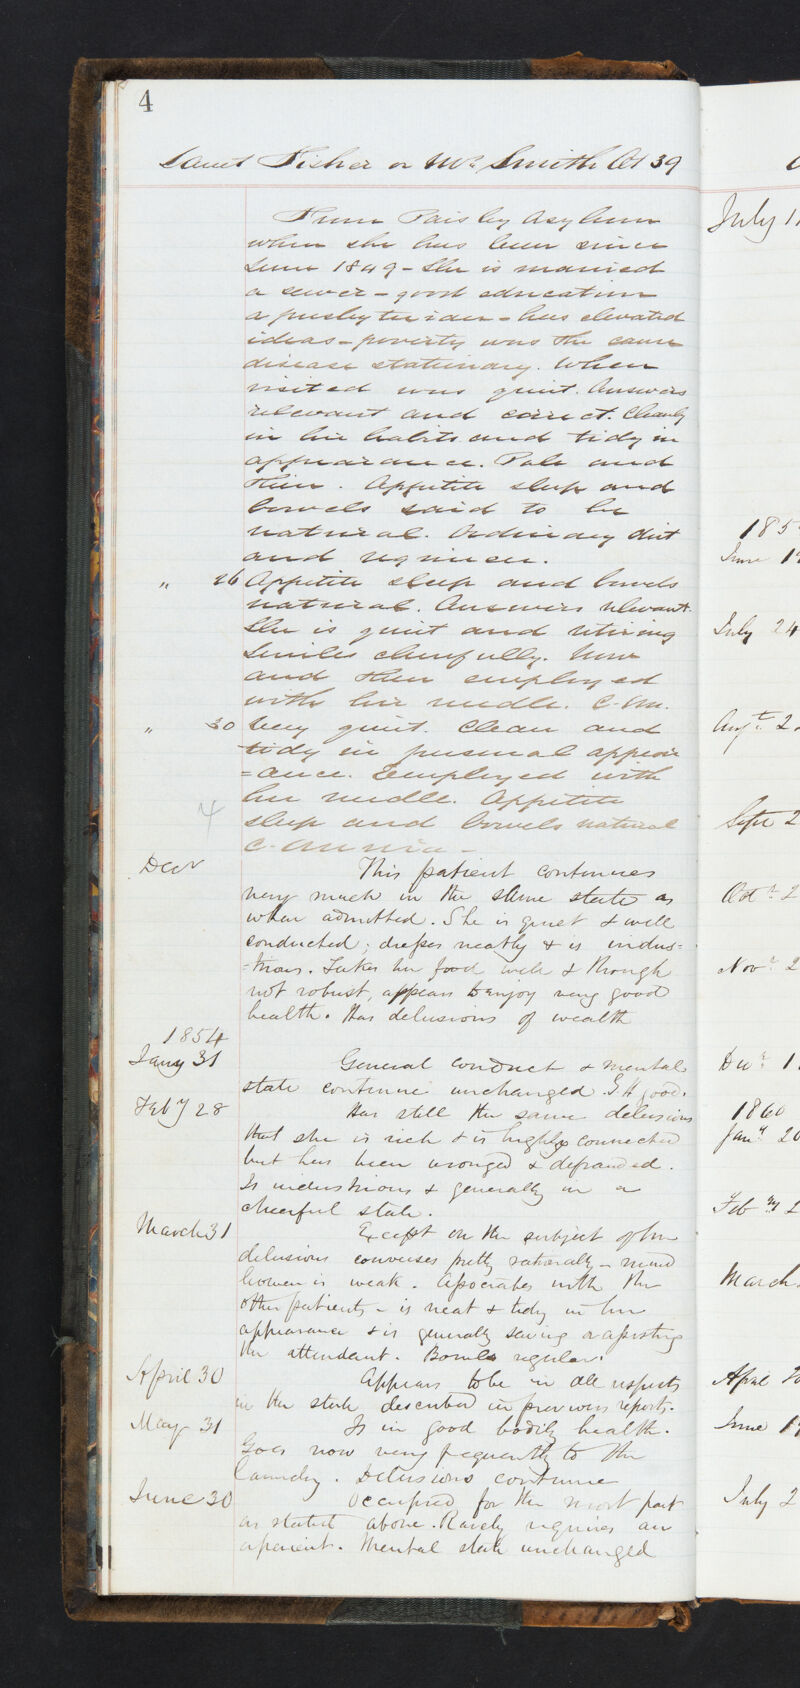 4
Janet Fisher or Mrs Smith Æt 39
From Paisley Asylum
where she has been since
June 1849 - She is married
a sewer - good education
a presbyterian - has elevated
ideas - poverty was the cause
disease stationary. When
visited was quiet. Answers
relevant and correct. Cleanly
in her habits and tidy in
appearance. Pale and
thin. Appetite sleep and
bowels said to be
natural. Ordinary diet
and regimen.
" 26 Appetite sleep and bowels
natural. Answers relevant.
She is quiet and retiring
Smiles cheerfully. Now
and then employed
with her needle. C-
" 30 Very quiet. Clean and
tidy in personal appear
=ance. Employed with
her needle. Appetite
sleep and bowels natural
4
Decr This patient continues
very much in the same state as
when admitted. She is quiet & well
conducted; dresses neatly & is indus=
=trious. Takes her food well & though
not robust, appears to enjoy very good
health. Has delusions of wealth
1854
Jany 31 General conduct & mental
state continue unchanged. G.H good.
Feby 28 Has still the same delusions
that she is rich & is highly connected
but has been wronged & defrauded.
Is industrious & generally in a
cheerful state.
March 31 Except on the subject of her
delusions converses pretty rationally - mind
however is weak. Associates with the
other patients - is neat & tidy in her
appearance & is generally sewing or assisting
the attendant. Bowels regular.
April 30 Appears to be in all respects
in the state described in previous reports.
May 31 Is in good bodily health.
Goes now very frequently to the
laundry. Delusions continue
June 30 Occupied for the most part
as stated above. Rarely requires an
aperient. Mental state unchanged
July 1
185
June 1
July 24
Augt 2
Sept 2
Octr 2
Novr 2
Decr 1
1860
Jany 20
Feby 2
March
April 2
June 1
July 2